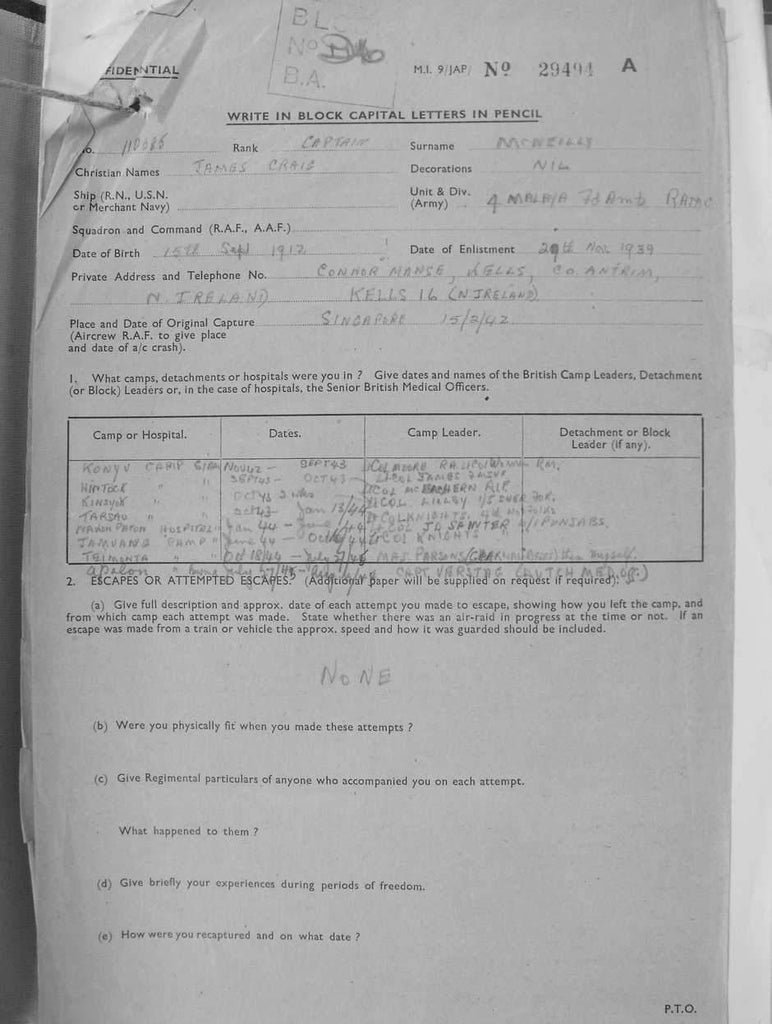 BL
No
B.A.
FIDENTIAL
M.I. 9/JAP/ No 29494 A
WRITE IN BLOCK CAPITAL LETTERS IN PENCIL
o. 110085 Rank CAPTAIN Surname MCNEILLY
Christian Names JAMES CRAIG Decorations NIL
Ship (R.N., U.S.N. or Merchant Navy)
Unit & Div. (Army) 4 MALAYA Fd Amb RAMC
Squadron and Command (R.A.F., A.A.F.)
Date of Birth 15th Sept 1912 Date of Enlistment 29th Nov. 1939
Private Address and Telephone No. CONNOR MANSE, KELLS, CO. ANTRIM,
N. IRELAND KELLS 16 (N IRELAND)
Place and Date of Original Capture SINGAPORE 15/2/42
(Aircrew R.A.F. to give place
and date of a/c crash).
1. What camps, detachments or hospitals were you in ? Give dates and names of the British Camp Leaders, Detachment
(or Block) Leaders or, in the case of hospitals, the Senior British Medical Officers.
Camp or Hospital. Dates. Camp Leader. Detachment or Block Leader (if any).
KONYU CAMP SIAM NOV 42 - SEPT 43 LtCOL MOORE RA. RM.
HINTOCK " " SEPT 43 - OCT 43 LT COL JAMES
KINSYOK " " OCT 43 LT COL McEACHERN AIF
TARSAU " " OCT 43 - Jan 44 LT COL LILLEY 1/5 FOR.
HOSPITAL Jan 44 - June 44 LT COL KNIGHTS, 4th NORFOLKS
TAMUANG CAMP June 44 - Oct 44 LT COL SAINTER PUNJABS.
" Oct 18/44 - July 45 LT COL KNIGHTS
July MAJ. PARSONS then myself.
CAPT (DUTCH MED. OFF.)
2. ESCAPES OR ATTEMPTED ESCAPES. (Additional paper will be supplied on request if required).
(a) Give full description and approx. date of each attempt you made to escape, showing how you left the camp, and
from which camp each attempt was made. State whether there was an air-raid in progress at the time or not. If an
escape was made from a train or vehicle the approx. speed and how it was guarded should be included.
NONE
(b) Were you physically fit when you made these attempts ?
(c) Give Regimental particulars of anyone who accompanied you on each attempt.
What happened to them ?
(d) Give briefly your experiences during periods of freedom.
(e) How were you recaptured and on what date ?
P.T.O.